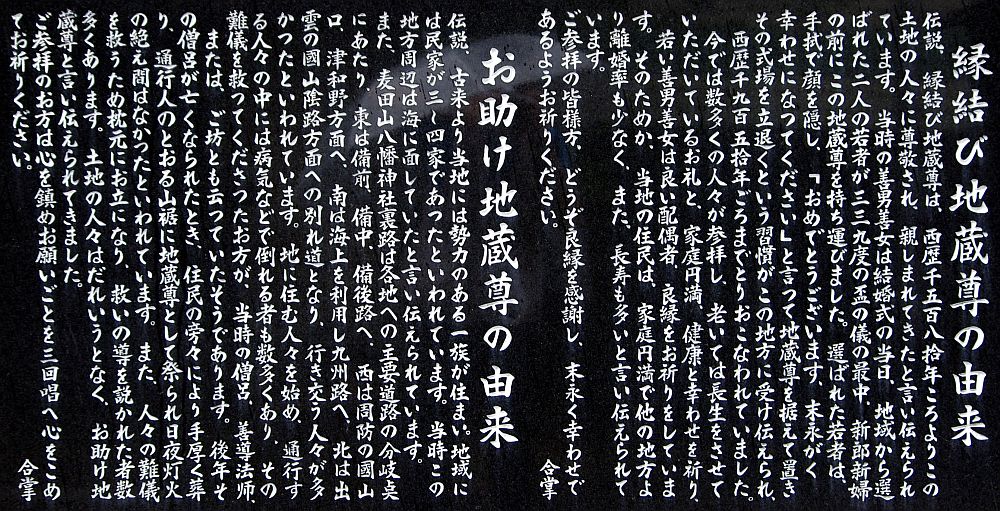 縁結び地蔵尊の由来
伝説、縁結び地蔵尊は、西歴千五百八拾年ころよりこの
土地の人々に尊敬され、親しまれてきたと言い伝えられ
ています。当時の善男善女は結婚式の当日、地域から選
ばれた二人の若者が三三九度の盃の儀の最中、新郎新婦
の前にこの地蔵尊を持ち運びました。選ばれた若者は、
手拭で顔を隠し、「おめでとうございます、末永がく
幸わせになってください」と言つて地蔵尊を据えて置き
その式場を立退くという習慣がこの地方に受け伝えられ、
西歴千九百五拾年ごろまでとりおこなわれていました。
今では数多くの人々が参拝し、老いては長生をさせて
いただいているお礼と、家庭円満、健康と幸わせを祈り、
若い善男善女は良い配偶者、良縁をお祈りをしていま
す。そのためか、当地の住民は、家庭円満で他の地方よ
り離婚率も少なく、また、長寿も多いと言い伝えられて
います。
ご参拝の皆様方、どうぞ良縁を感謝し、末永く幸わせで
あるようお祈りください。
合掌
お助け地蔵尊の由来
伝説、古来より当地には勢力のある一族が住まい。地域に
は民家が三〜四家であつたといわれています。当時この
地方周辺は海に面していたと言い伝えられています。
また、麦田山八幡神社裏路は各地への主要道路の分岐点
にあたり、東は備前、備中、備後路へ、西は周防の國山
口、津和野方面へ、南は海上を利用し九州路へ、北は出
雲の國山陰路方面への別れ道となり、行き交う人々が多
かつたといわれています。地に住む人々を始め、通行す
る人々の中には病気などで倒れる者も数多くあり、その
難儀を救つてくださつたお方が、当時の僧呂、善導法師
または、ご坊とも云つていたそうであります。後年そ
の僧呂が亡くなられたとき、住民の旁々により手厚く葬
り、通行人のとおる山裾に地蔵尊として祭られ日夜灯火
の絶え間はなかつたといわれています。また、人々の難儀
を救うため枕元にお立になり、救いの導を説かれた者数
多くあります。土地の人々はだれいうとなく、お助け地
蔵尊と言い伝えられてきました。
ご参拝のお方は心を鎮めお願いごとを三回唱へ心をこめ
てお祈りください。
合掌